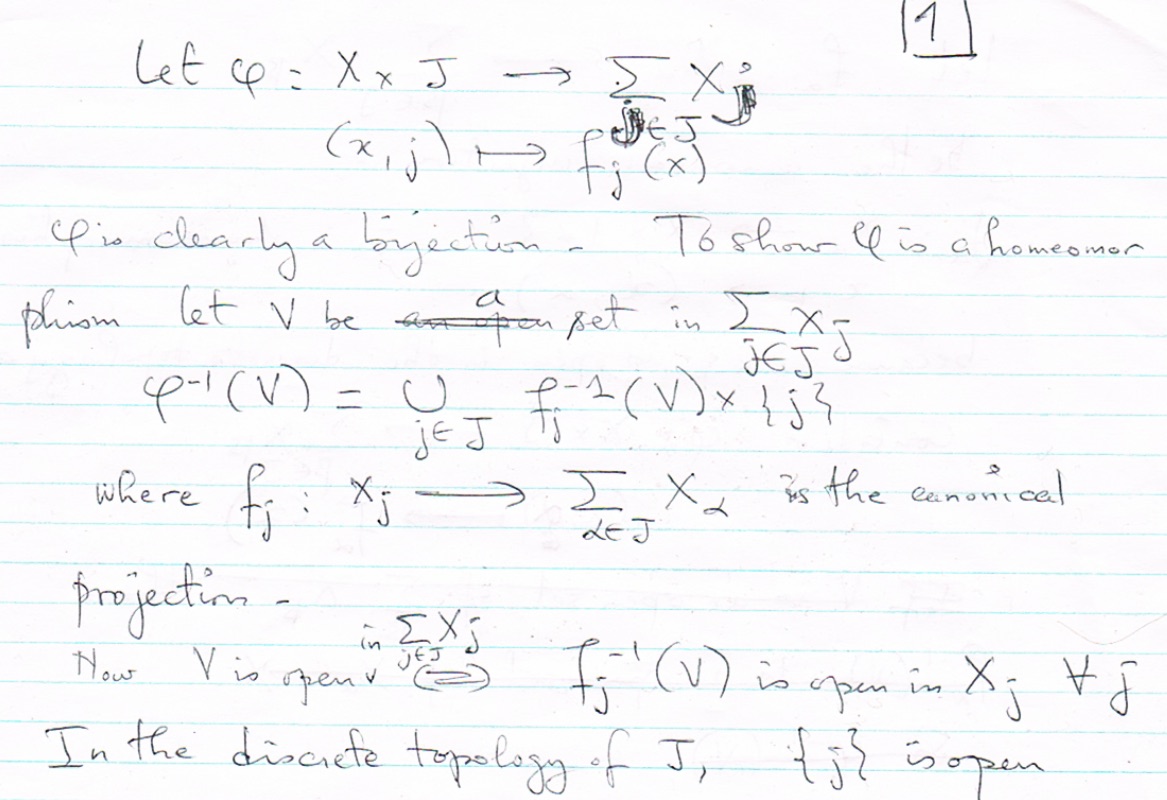 1
Let φ : X × J → ∑_{j∈J} X_j
(x, j) ↦ f_j(x)
φ is clearly a bijection - To show φ is a homeomor
phism let V be a set in ∑_{j∈J} X_j
φ^{-1}(V) = ∪_{j∈J} f_j^{-1}(V) × {j}
where f_j : X_j → ∑_{α∈J} X_α is the canonical
projection -
Now V is open in ∑_{j∈J} X_j ⇔ f_j^{-1}(V) is open in X_j ∀ j
In the discrete topology of J, {j} is open